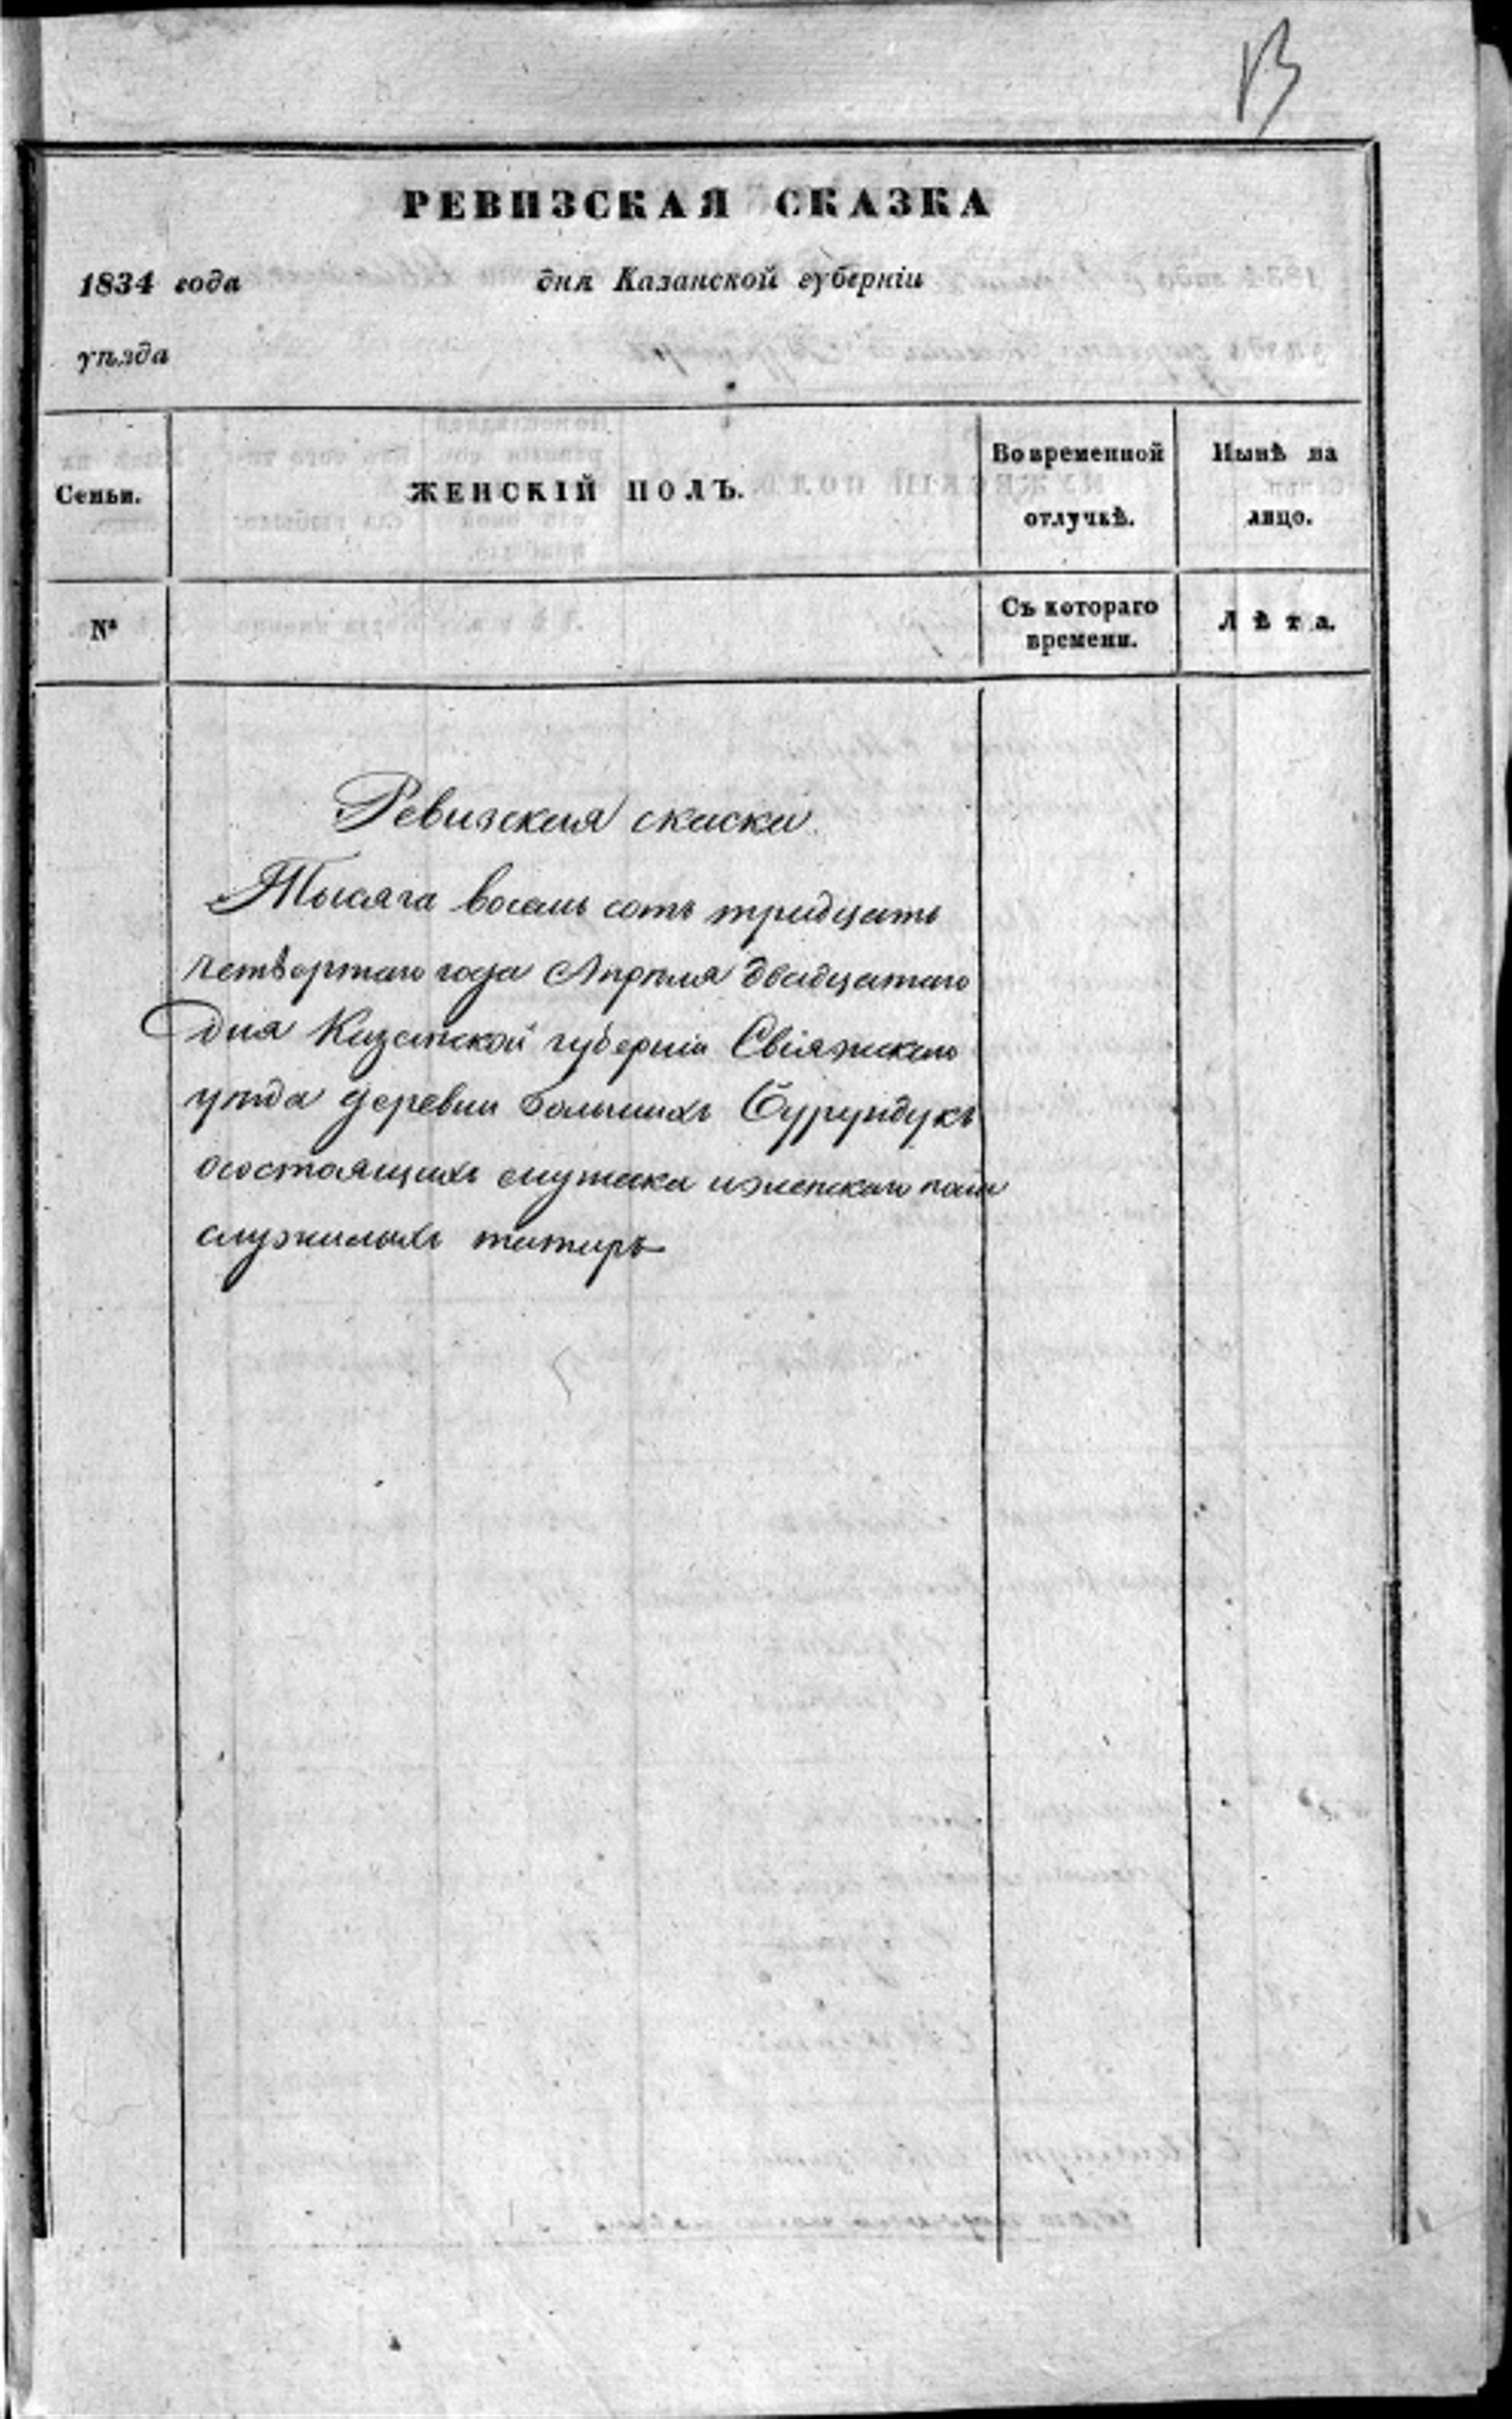 13
РЕВИЗСКАЯ СКАЗКА
1834 года дня Казанской губерніи
уѣзда
Семьи.
ЖЕНСКІЙ ПОЛЪ.
Во временной
отлучкѣ.
Нынѣ на
лицо.
№
Съ котораго
времени.
Лѣта.
Ревизская скаска
Тысяча восемь сотъ тридцать
четвертаго года Апрѣля двадцатаго
дня Казанской губерніи Свіяжскаго
уѣзда деревни Большихъ Бурундукъ
осостоящихъ мужска иженскаго пола
служилыхъ татаръ